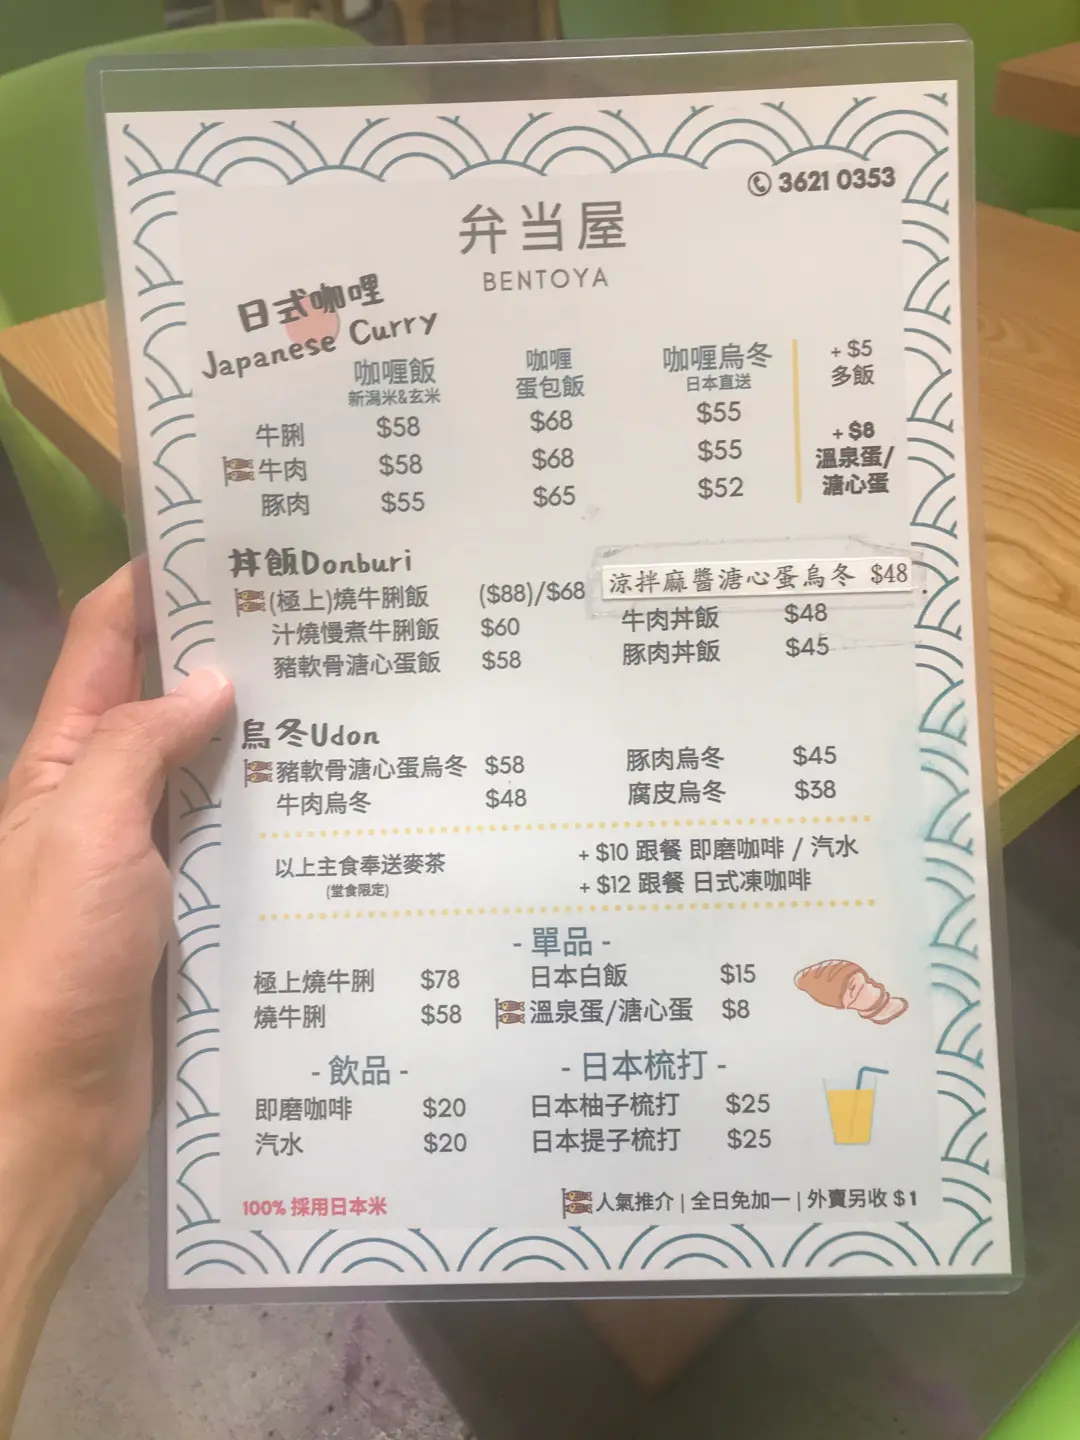 3621 0353
弁当屋
BENTOYA
日式咖哩
Japanese Curry
咖喱飯 咖喱 咖喱烏冬
新潟米&玄米 蛋包飯 日本直送
牛脷 $58 $68 $55
牛肉 $58 $68 $55
豚肉 $55 $65 $52
+ $5
多飯
+ $8
溫泉蛋/
溏心蛋
丼飯Donburi
(極上)燒牛脷飯 ($88)/$68
汁燒慢煮牛脷飯 $60
豬軟骨溏心蛋飯 $58
涼拌麻醬溏心蛋烏冬 $48
牛肉丼飯 $48
豚肉丼飯 $45
烏冬Udon
豬軟骨溏心蛋烏冬 $58 豚肉烏冬 $45
牛肉烏冬 $48 腐皮烏冬 $38
以上主食奉送麥茶
(堂食限定)
+ $10 跟餐 即磨咖啡 / 汽水
+ $12 跟餐 日式凍咖啡
- 單品 -
極上燒牛脷 $78 日本白飯 $15
燒牛脷 $58 溫泉蛋/溏心蛋 $8
- 飲品 - - 日本梳打 -
即磨咖啡 $20 日本柚子梳打 $25
汽水 $20 日本提子梳打 $25
100% 採用日本米
人氣推介 | 全日免加一 | 外賣另收 $1